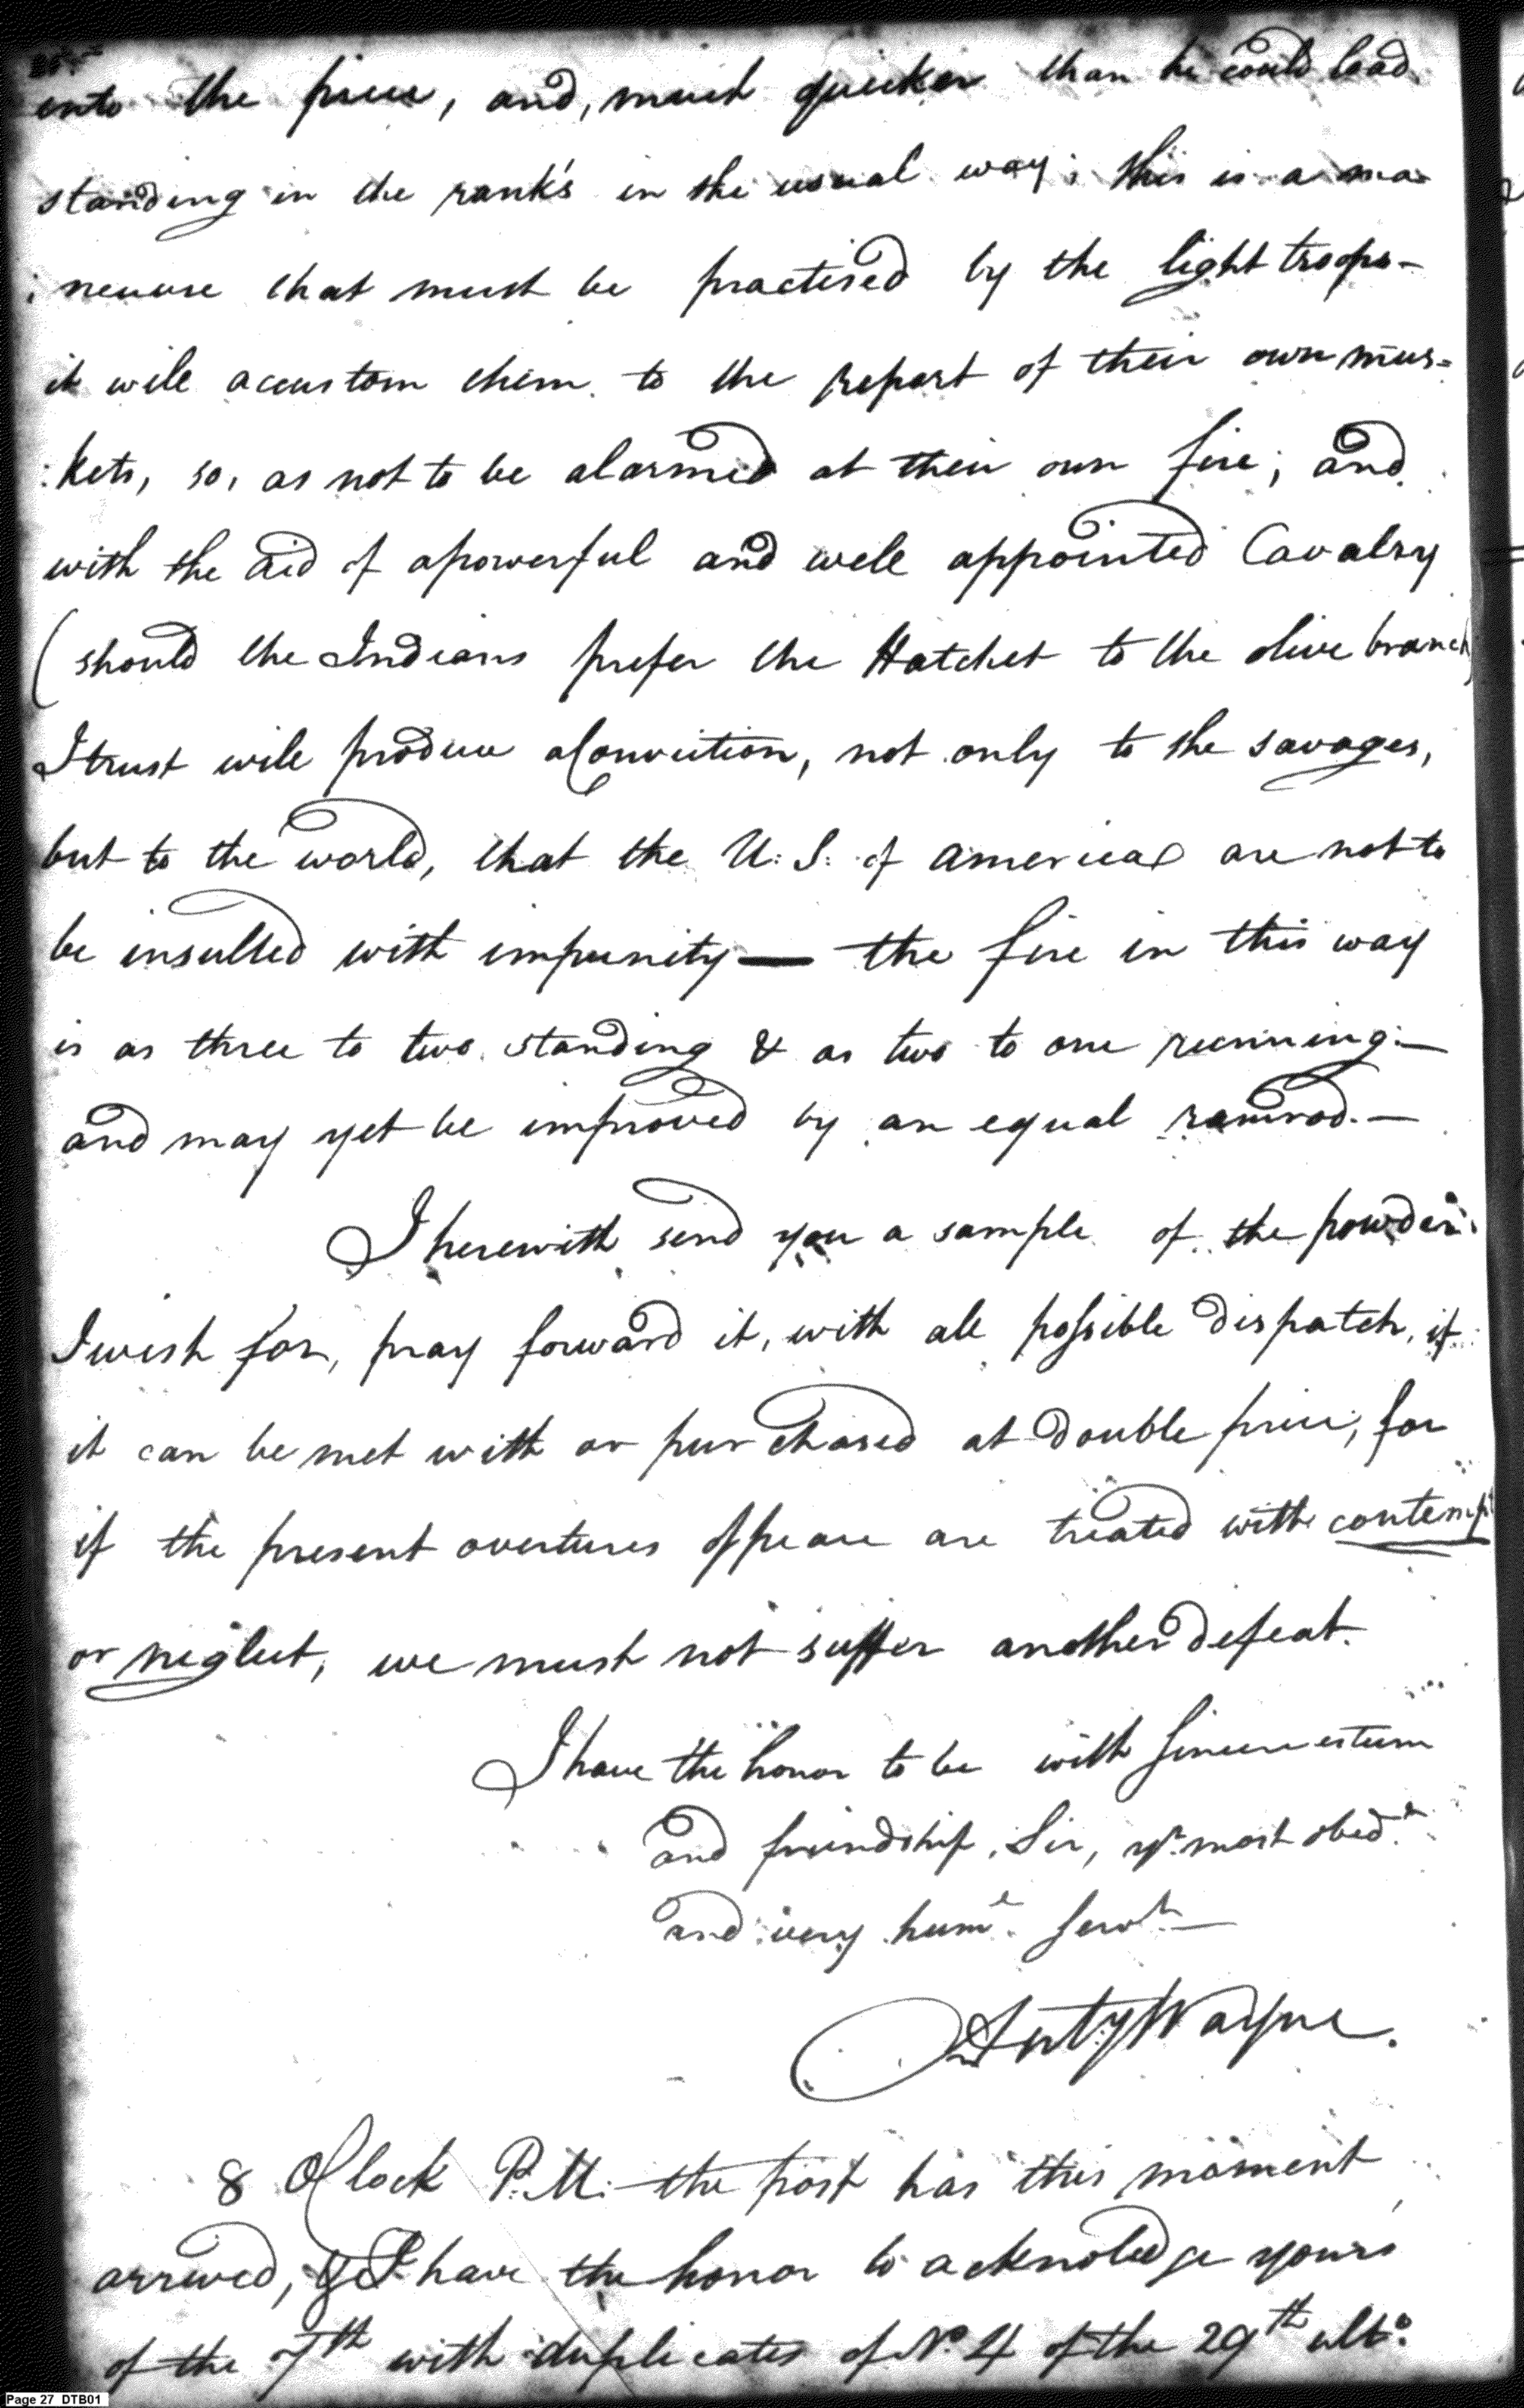 into the piece, and, much quicker than he could load
standing in the rank's in the usual way; this is a ma-
:neuvre that must be practised by the light troops-
it will accustom them to the report of their own mus=
:kets, so, as not to be alarmed at their own fire; and
with the aid of a powerful and well appointed Cavalry
(should the Indians prefer the Hatchet to the olive branch)
I trust will produce a Conviction, not only to the savages,
but to the world, that the U: S: of america are not to
be insulted with impunity — the fire in this way
is as three to two standing & as two to one running:—
and may yet be improved by an equal ramrod.—
I herewith send you a sample of the powder
I wish for, pray forward it, with all possible dispatch, if
it can be met with or purchased at double price; for
if the present overtures of peace are treated with contempt
or neglect, we must not suffer another defeat.
I have the honor to be with sincere esteem
and friendship, Sir, yr. most obedt.
and very huml. servt—
Anty Wayne.
8 OClock P:M: the post has this moment
arrived, & I have the honor to acknoledge yours
of the 7th with duplicates of No. 4 of the 29th ulto.
Page 27 DTB01